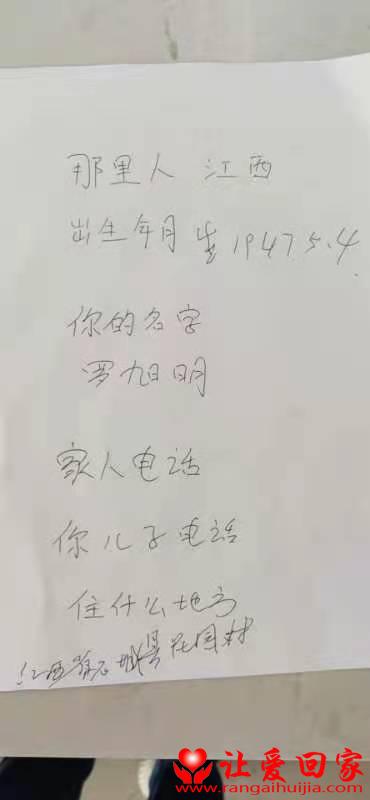 那里人 江西
出生年月 生 1947 5.4
你的名字
罗旭明
家人电话
你儿子电话
住什么地方
江西省石城县花园村
让爱回家
www.rangaihuijia.com